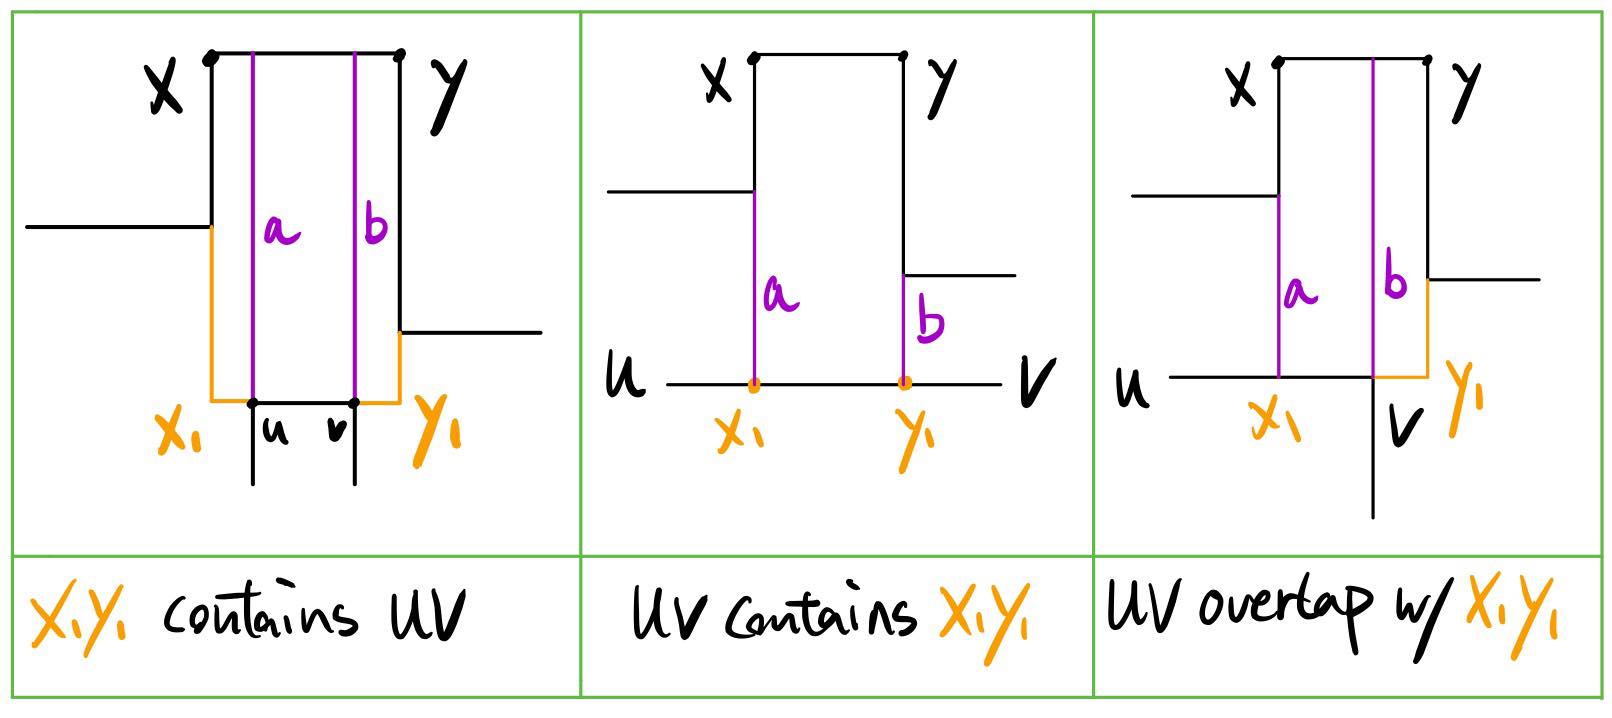 X Y
a b
X₁ u v Y₁
X Y
a
b
U V
X₁ Y₁
X Y
a b
U V Y₁
X₁
X₁Y₁ contains UV
UV contains X₁Y₁
UV overlap w/ X₁Y₁